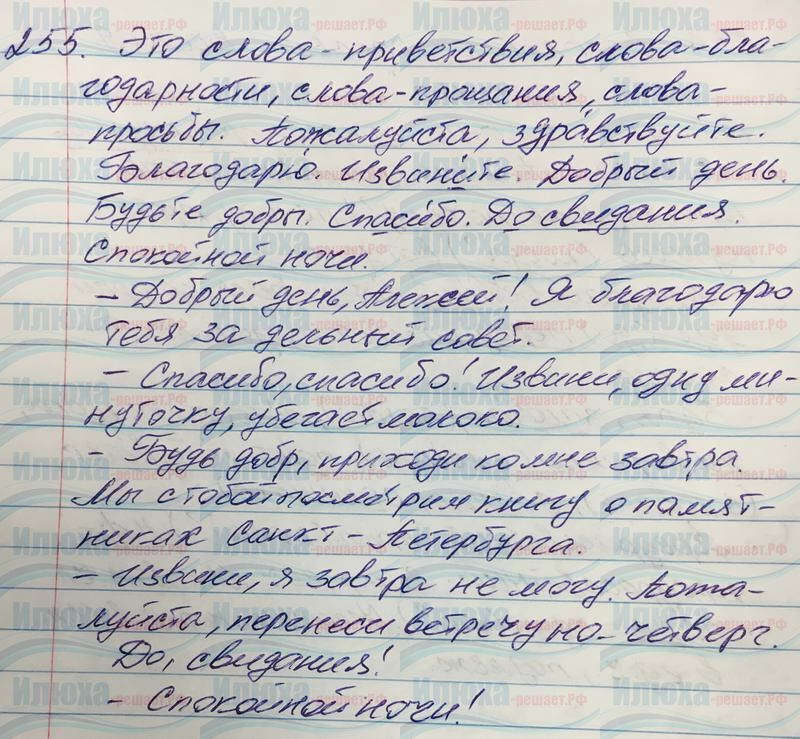 255. Это слова-приветствия, слова-бла-
годарности, слова-прощания, слова-
просьбы. Пожалуйста, здравствуйте.
Благодарю. Извините. Добрый день.
Будьте добры. Спасибо. До свидания.
Спокойной ночи.
- Добрый день, Алексей! Я благодарю
тебя за дельный совет.
- Спасибо, спасибо! Извини, одну ми-
нуточку, убегает молоко.
- Будь добр, приходи ко мне завтра.
Мы с тобой посмотрим книгу о памят-
никах Санкт-Петербурга.
- Извини, я завтра не могу. Пожа-
луйста, перенеси встречу на четверг.
До, свидания!
- Спокойной ночи!
Илюха-решает.РФ